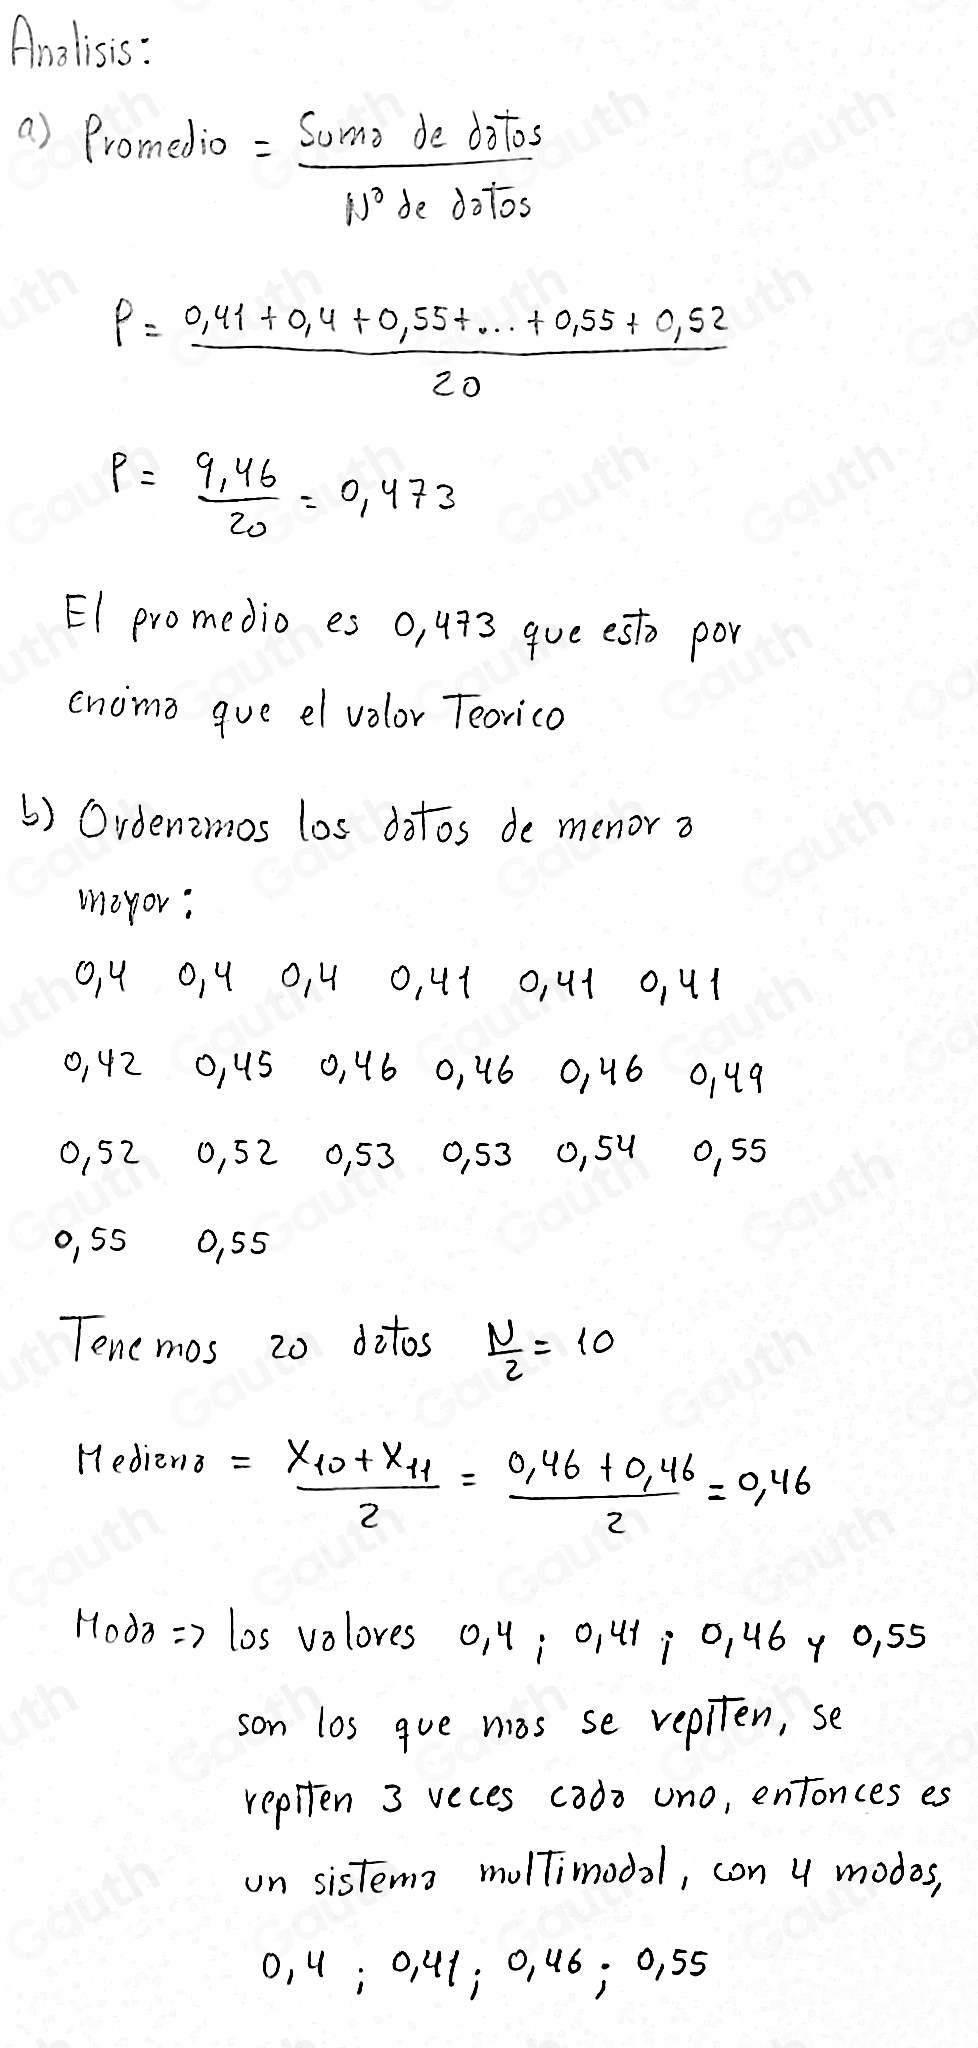 Analisis:
a) Promedio = Suma de datos
N° de datos
P = 0,41 + 0,4 + 0,55 + ... + 0,55 + 0,52
20
P = 9,46
20
= 0,473
El promedio es 0,473 que esta por
encima que el valor Teorico
b) Ordenamos los datos de menor a
mayor:
0,4 0,4 0,4 0,41 0,41 0,41
0,42 0,45 0,46 0,46 0,46 0,49
0,52 0,52 0,53 0,53 0,54 0,55
0,55 0,55
Tenemos 20 datos N/2 = 10
Mediana = X10 + X11
2
= 0,46 + 0,46
2
= 0,46
Moda => los valores 0,4 ; 0,41 ; 0,46 y 0,55
son los que mas se repiten, se
repiten 3 veces cada uno, entonces es
un sistema multimodal, con 4 modas,
0,4 ; 0,41 ; 0,46 ; 0,55
Gauth